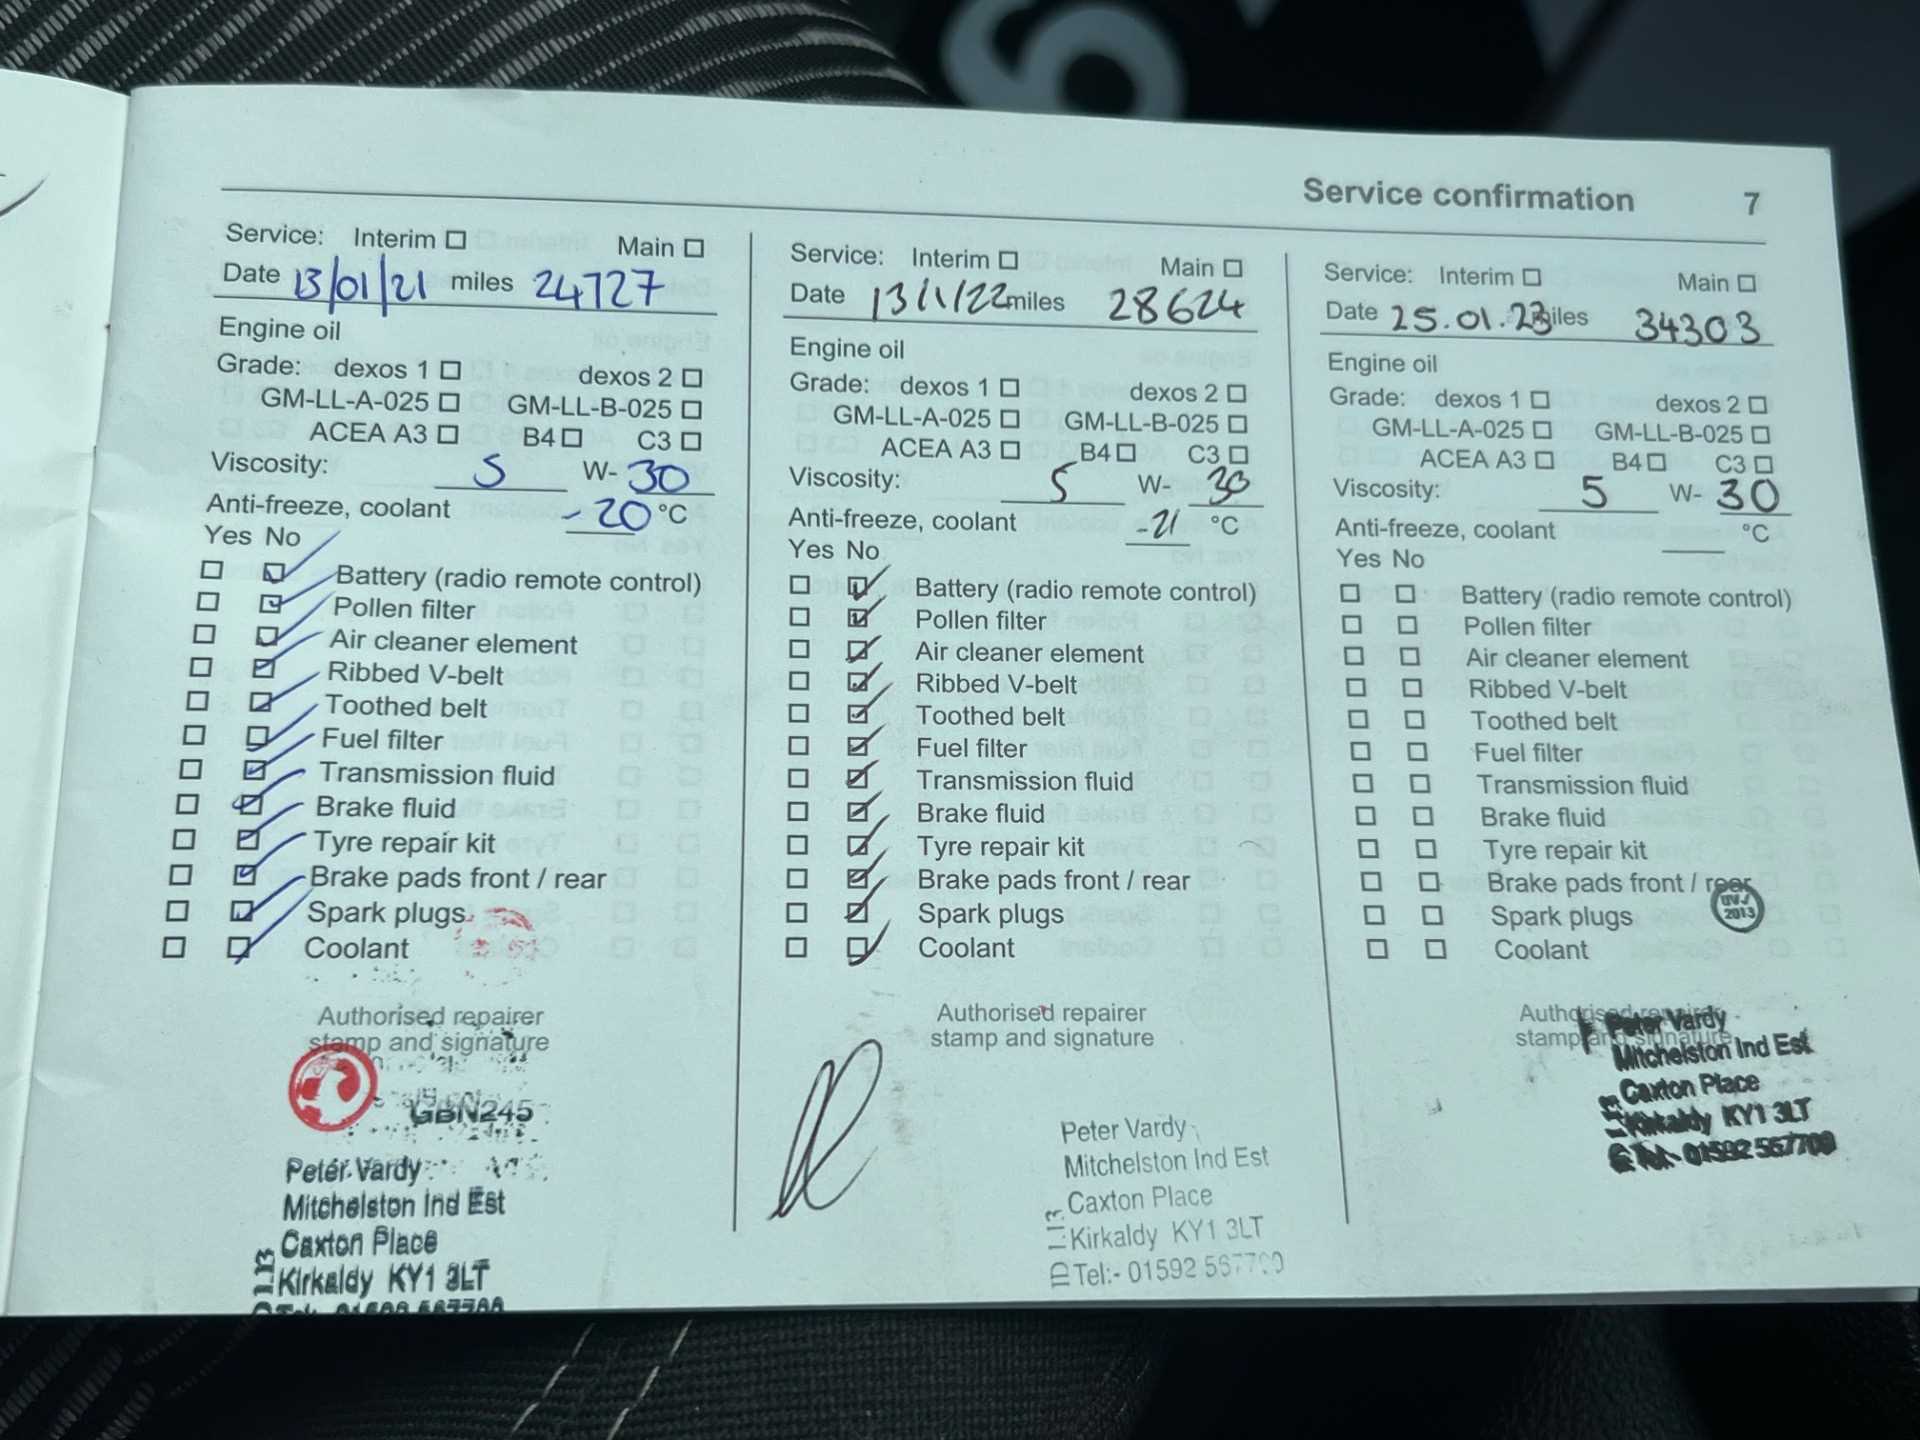 Service confirmation 7
Service: Interim Main
Date 13/01/21 miles 24727
Engine oil
Grade: dexos 1 dexos 2
GM-LL-A-025 GM-LL-B-025
ACEA A3 B4 C3
Viscosity: 5 W- 30
Anti-freeze, coolant -20 °C
Yes No
Battery (radio remote control)
Pollen filter
Air cleaner element
Ribbed V-belt
Toothed belt
Fuel filter
Transmission fluid
Brake fluid
Tyre repair kit
Brake pads front / rear
Spark plugs
Coolant
Authorised repairer
stamp and signature
GBN245
Peter Vardy
Mitchelston Ind Est
Caxton Place
Kirkaldy KY1 3LT
Service: Interim Main
Date 13/1/22 miles 28624
Engine oil
Grade: dexos 1 dexos 2
GM-LL-A-025 GM-LL-B-025
ACEA A3 B4 C3
Viscosity: 5 W- 30
Anti-freeze, coolant -21 °C
Yes No
Battery (radio remote control)
Pollen filter
Air cleaner element
Ribbed V-belt
Toothed belt
Fuel filter
Transmission fluid
Brake fluid
Tyre repair kit
Brake pads front / rear
Spark plugs
Coolant
Authorised repairer
stamp and signature
Peter Vardy
Mitchelston Ind Est
Caxton Place
Kirkaldy KY1 3LT
Tel:- 01592 567700
Service: Interim Main
Date 25.01.23 miles 34303
Engine oil
Grade: dexos 1 dexos 2
GM-LL-A-025 GM-LL-B-025
ACEA A3 B4 C3
Viscosity: 5 W- 30
Anti-freeze, coolant °C
Yes No
Battery (radio remote control)
Pollen filter
Air cleaner element
Ribbed V-belt
Toothed belt
Fuel filter
Transmission fluid
Brake fluid
Tyre repair kit
Brake pads front / rear
Spark plugs
2013
Coolant
Authorised repairer
stamp and signature
Peter Vardy
Mitchelston Ind Est
Caxton Place
Kirkaldy KY1 3LT
Tel:- 01592 567700